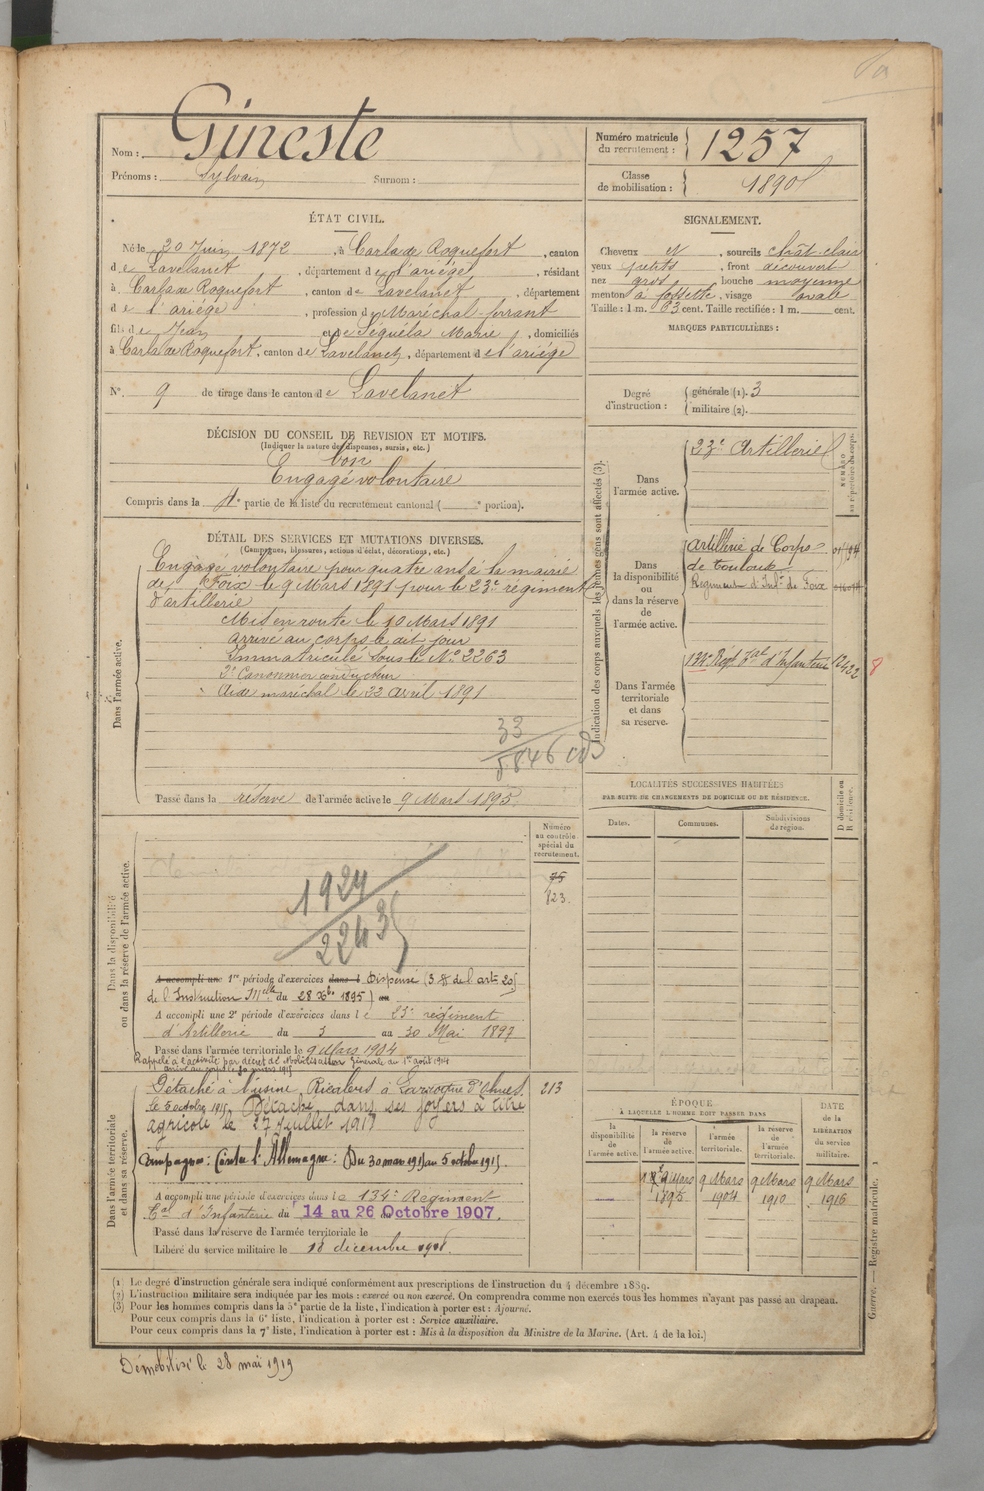 Nom : Gineste
Prénoms : Sylvain Surnom :
Numéro matricule du recrutement : 1257
Classe de mobilisation : 1890
ÉTAT CIVIL.
Né le 20 Juin 1872, à Carla de Roquefort, canton
de Lavelanet, département de l'ariège, résidant
à Carla de Roquefort, canton de Lavelanet, département
de l'ariége, profession de Maréchal-ferrant
fils de Jean et de Séguéla Marie, domiciliés
à Carla de Roquefort, canton de Lavelanet, département de l'ariége
N° 9 de tirage dans le canton de Lavelanet
SIGNALEMENT.
Cheveux et, sourcils chât-clair
yeux petits, front découvert
nez gros, bouche moyenne
menton à fossette, visage ovale
Taille : 1 m. 63 cent. Taille rectifiée : 1 m. cent.
MARQUES PARTICULIÈRES :
Degré d'instruction : générale (1). 3
militaire (2).
DÉCISION DU CONSEIL DE REVISION ET MOTIFS.
(Indiquer la nature des dispenses, sursis, etc.)
bon
Engagé volontaire
Compris dans la 4e partie de la liste du recrutement cantonal ( e portion).
DÉTAIL DES SERVICES ET MUTATIONS DIVERSES.
(Campagnes, blessures, actions d'éclat, décorations, etc.)
Dans l'armée active.
Engagé volontaire pour quatre ans à la mairie
de Foix le 9 Mars 1891 pour le 23e régiment
d'artillerie
Mis en route le 10 Mars 1891
arrivé au corps le dit jour
Immatriculé sous le No 2263
2e Canonnier conducteur
Aide maréchal le 22 avril 1891
33
5846
Passé dans la réserve de l'armée active le 9 Mars 1895.
Indication des corps auxquels les jeunes gens sont affectés (3).
NUMÉRO au répertoire du corps.
Dans l'armée active.
23e Artillerie
Dans la disponibilité ou dans la réserve de l'armée active.
Artillerie de Corps
de toulouse
Régiment d'Inf. de Foix
Dans l'armée territoriale et dans sa réserve.
134e Régt Tal d'Infanterie 12422
8
LOCALITÉS SUCCESSIVES HABITÉES
PAR SUITE DE CHANGEMENTS DE DOMICILE OU DE RÉSIDENCE.
D domicile ou R résidence.
Dates. Communes. Subdivisions de région.
Dans la disponibilité ou dans la réserve de l'armée active.
Numéro au contrôle spécial du recrutement.
75
823
1924
2243
A accompli une 1re période d'exercices dans l Dispensé (3 § de l'art. 20
de l'Instruction Melle du 28 Xbre 1895) au
A accompli une 2e période d'exercices dans le 23e régiment
d'Artillerie du 3 au 30 Mai 1897
Passé dans l'armée territoriale le 9 Mars 1904
Rappelé à l'activité par décret de Mobilisation Générale du 1er août 1914
Dans l'armée territoriale et dans sa réserve.
Détaché à l'usine Ricalens à Laroque d'Olmes 213
le 5 octobre 1915. Détaché dans ses foyers à titre
agricole le 27 Juillet 1917
Campagne : Contre l'Allemagne : Du 30 mars 1915 au 5 octobre 1915.
A accompli une période d'exercices dans le 134e Régiment
Tal d'Infanterie du 14 au 26 Octobre 1907.
Passé dans la réserve de l'armée territoriale le
Libéré du service militaire le 10 décembre 1918.
ÉPOQUE
À LAQUELLE L'HOMME DOIT PASSER DANS
la disponibilité de l'armée active.
la réserve de l'armée active.
l'armée territoriale.
la réserve de l'armée territoriale.
DATE de la LIBÉRATION du service militaire.
9 Mars 1895
9 Mars 1904
9 Mars 1910
9 Mars 1916
Guerre. — Registre matricule. 1
(1) Le degré d'instruction générale sera indiqué conformément aux prescriptions de l'instruction du 4 décembre 1889.
(2) L'instruction militaire sera indiquée par les mots : exercé ou non exercé. On comprendra comme non exercés tous les hommes n'ayant pas passé au drapeau.
(3) Pour les hommes compris dans la 5e partie de la liste, l'indication à porter est : Ajourné.
Pour ceux compris dans la 6e liste, l'indication à porter est : Service auxiliaire.
Pour ceux compris dans la 7e liste, l'indication à porter est : Mis à la disposition du Ministre de la Marine. (Art. 4 de la loi.)
Démobilisé le 28 mai 1919